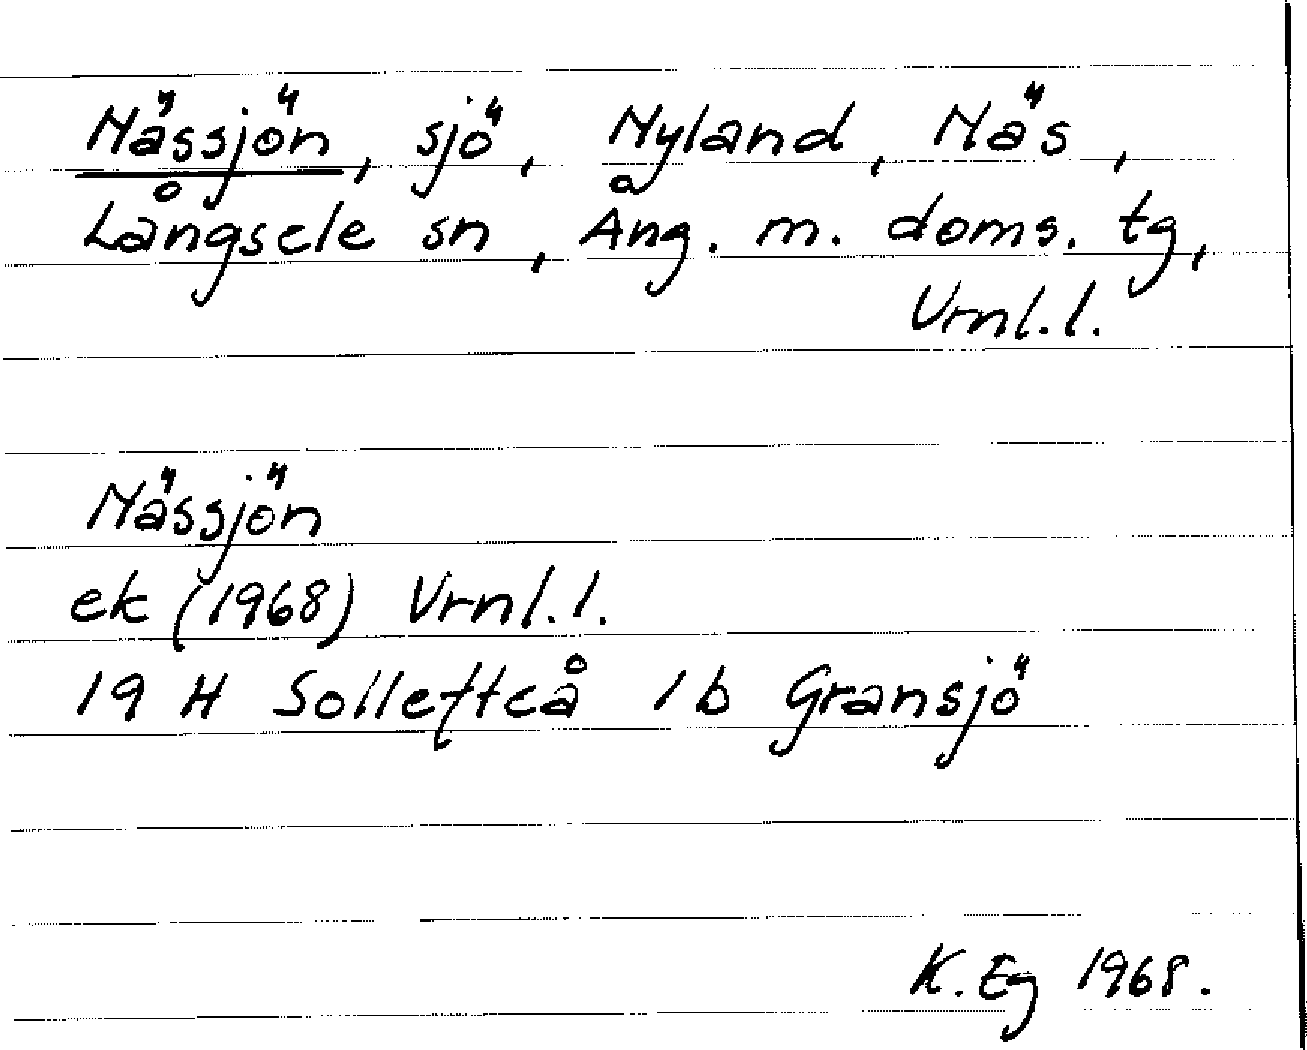 Nässjön, sjö, Nyland, Näs,
Långsele sn, Ång. m. doms. tg,
Vrnl.l.
Nässjön
ek (1968) Vrnl.l.
19 H Sollefteå 1b Gransjö
K. Eg 1968.